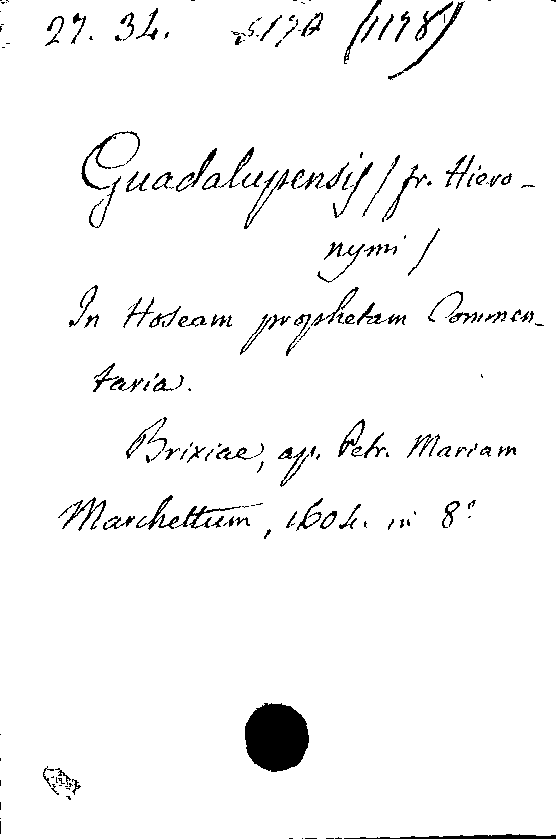 27. 34. 5170 (1178)
Guadalupensis / fr. Hiero-
nymi /
In Hoseam prophetam Commen-
taria.
Brixiae, ap. Petr. Mariam
Marchettum, 1604. in 8°